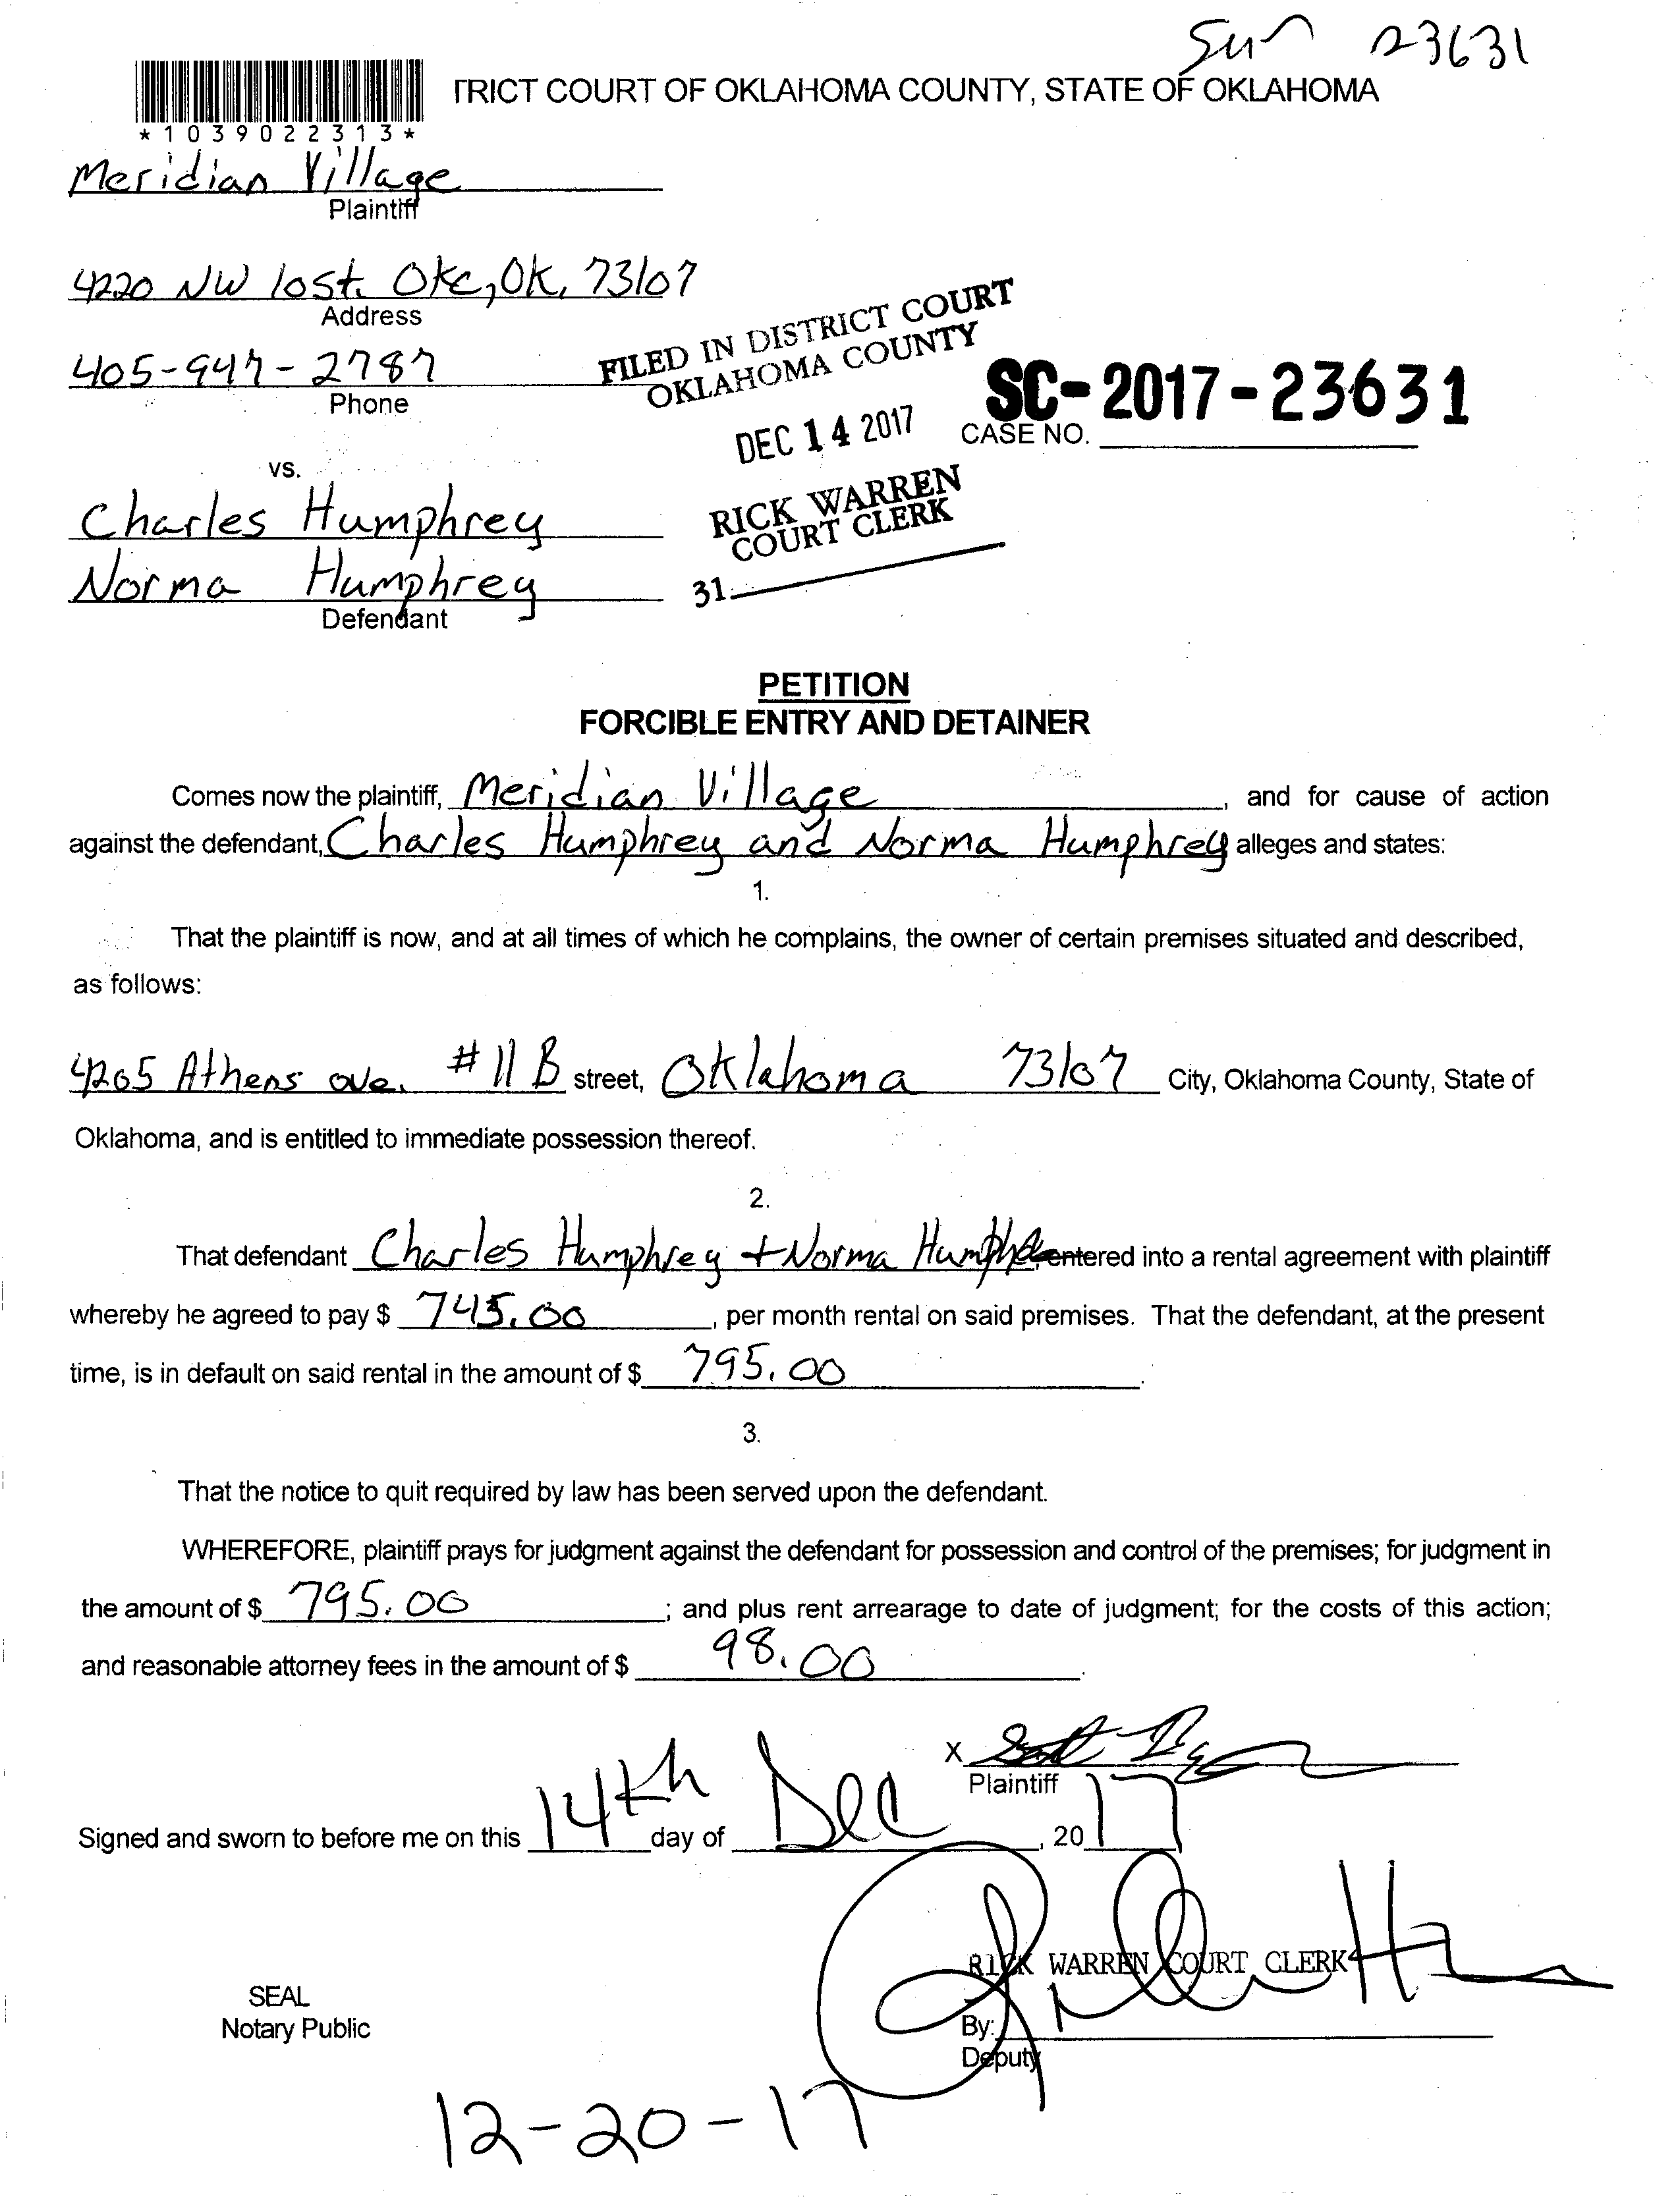 Sun 23631
TRICT COURT OF OKLAHOMA COUNTY, STATE OF OKLAHOMA
*1039022313*
Meridian Village
Plaintiff
4220 NW 10st. Okc, Ok, 73107
Address
405-947-2787
Phone
FILED IN DISTRICT COURT
OKLAHOMA COUNTY
DEC 14 2017
SC-2017-23631
CASE NO.
RICK WARREN
COURT CLERK
31
vs.
Charles Humphrey
Norma Humphrey
Defendant
PETITION
FORCIBLE ENTRY AND DETAINER
Comes now the plaintiff, Meridian Village, and for cause of action
against the defendant, Charles Humphrey and Norma Humphrey alleges and states:
1.
That the plaintiff is now, and at all times of which he complains, the owner of certain premises situated and described,
as follows:
4205 Athens ave. #11B street, Oklahoma 73107 City, Oklahoma County, State of
Oklahoma, and is entitled to immediate possession thereof.
2.
That defendant Charles Humphrey + Norma entered into a rental agreement with plaintiff
whereby he agreed to pay $ 745.00, per month rental on said premises. That the defendant, at the present
time, is in default on said rental in the amount of $ 795.00.
3.
That the notice to quit required by law has been served upon the defendant.
WHEREFORE, plaintiff prays for judgment against the defendant for possession and control of the premises; for judgment in
the amount of $ 795.00; and plus rent arrearage to date of judgment; for the costs of this action;
and reasonable attorney fees in the amount of $ 98.00.
X
Plaintiff
Signed and sworn to before me on this 14th day of Dec, 2017
RICK WARREN COURT CLERK
SEAL
Notary Public
By:
Deputy
12-20-17